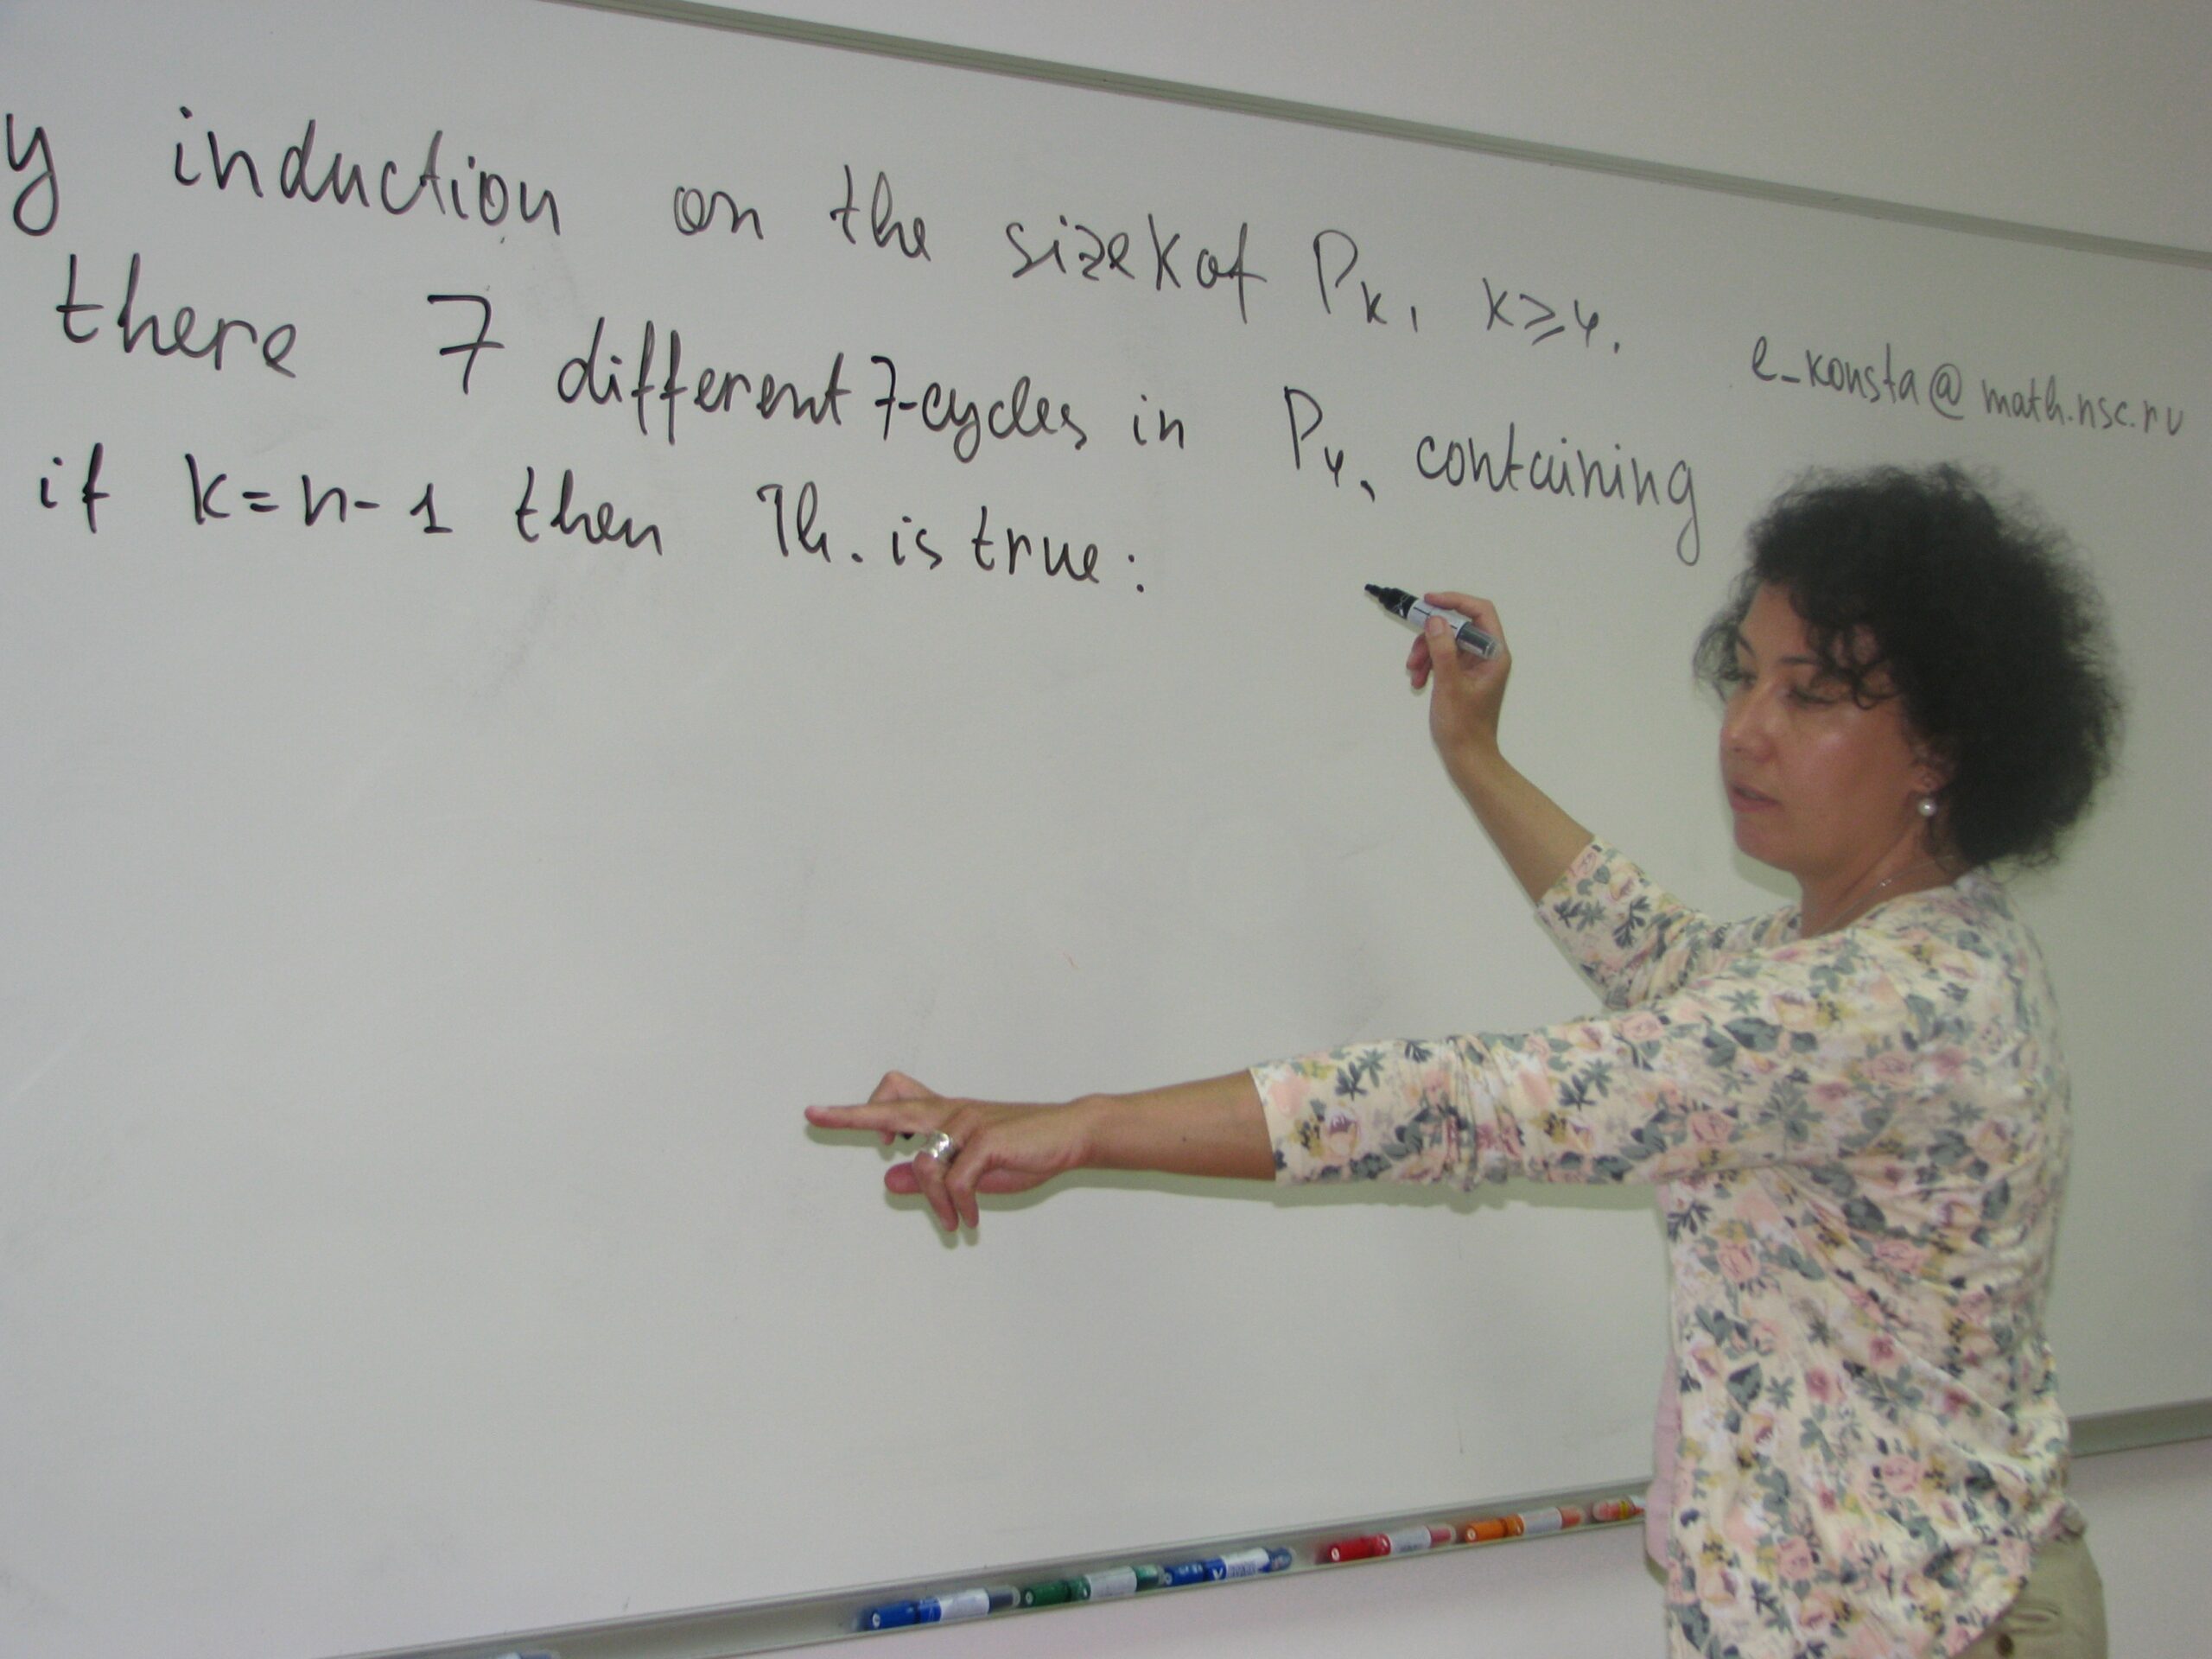 y induction on the size k of Pk, k≥4.
e-konsta@math.nsc.ru
there 7 different 7-cycles in P4, containing
if k=n-1 then Th. is true: